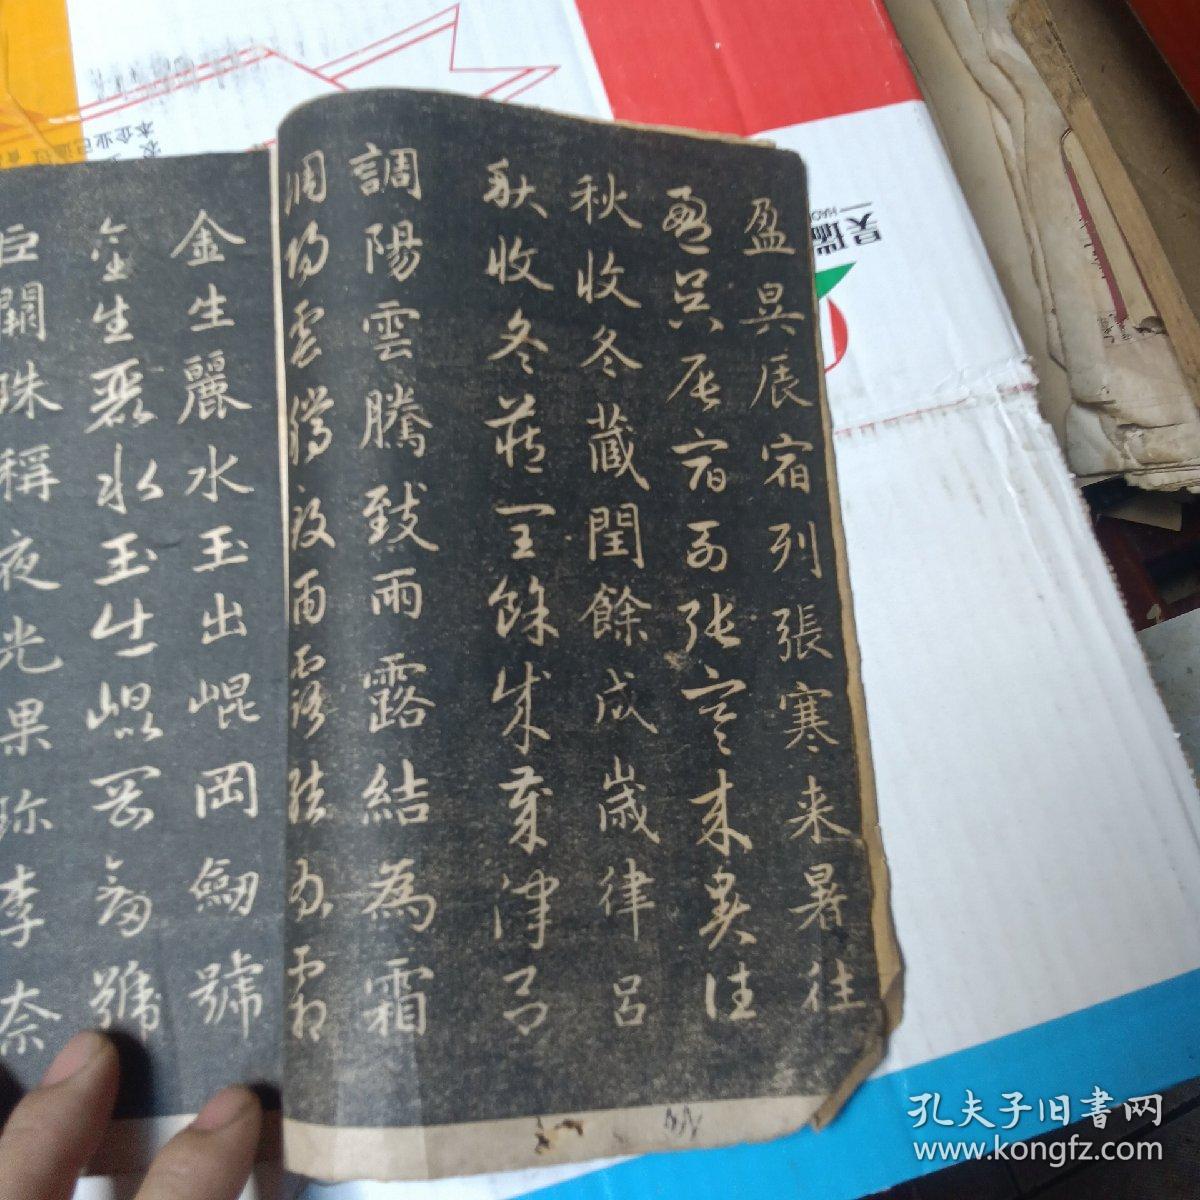 盈昃辰宿列張寒来暑往
盈昃辰宿列張寒来暑往
秋收冬藏閏餘成歲律呂
秋收冬藏閏餘成歲律呂
調陽雲騰致雨露結為霜
調陽雲騰致雨露結為霜
金生麗水玉出崐岡劒號
金生麗水玉出崐岡劒號
巨闕珠稱夜光果珎李柰
孔夫子旧书网
www.kongfz.com